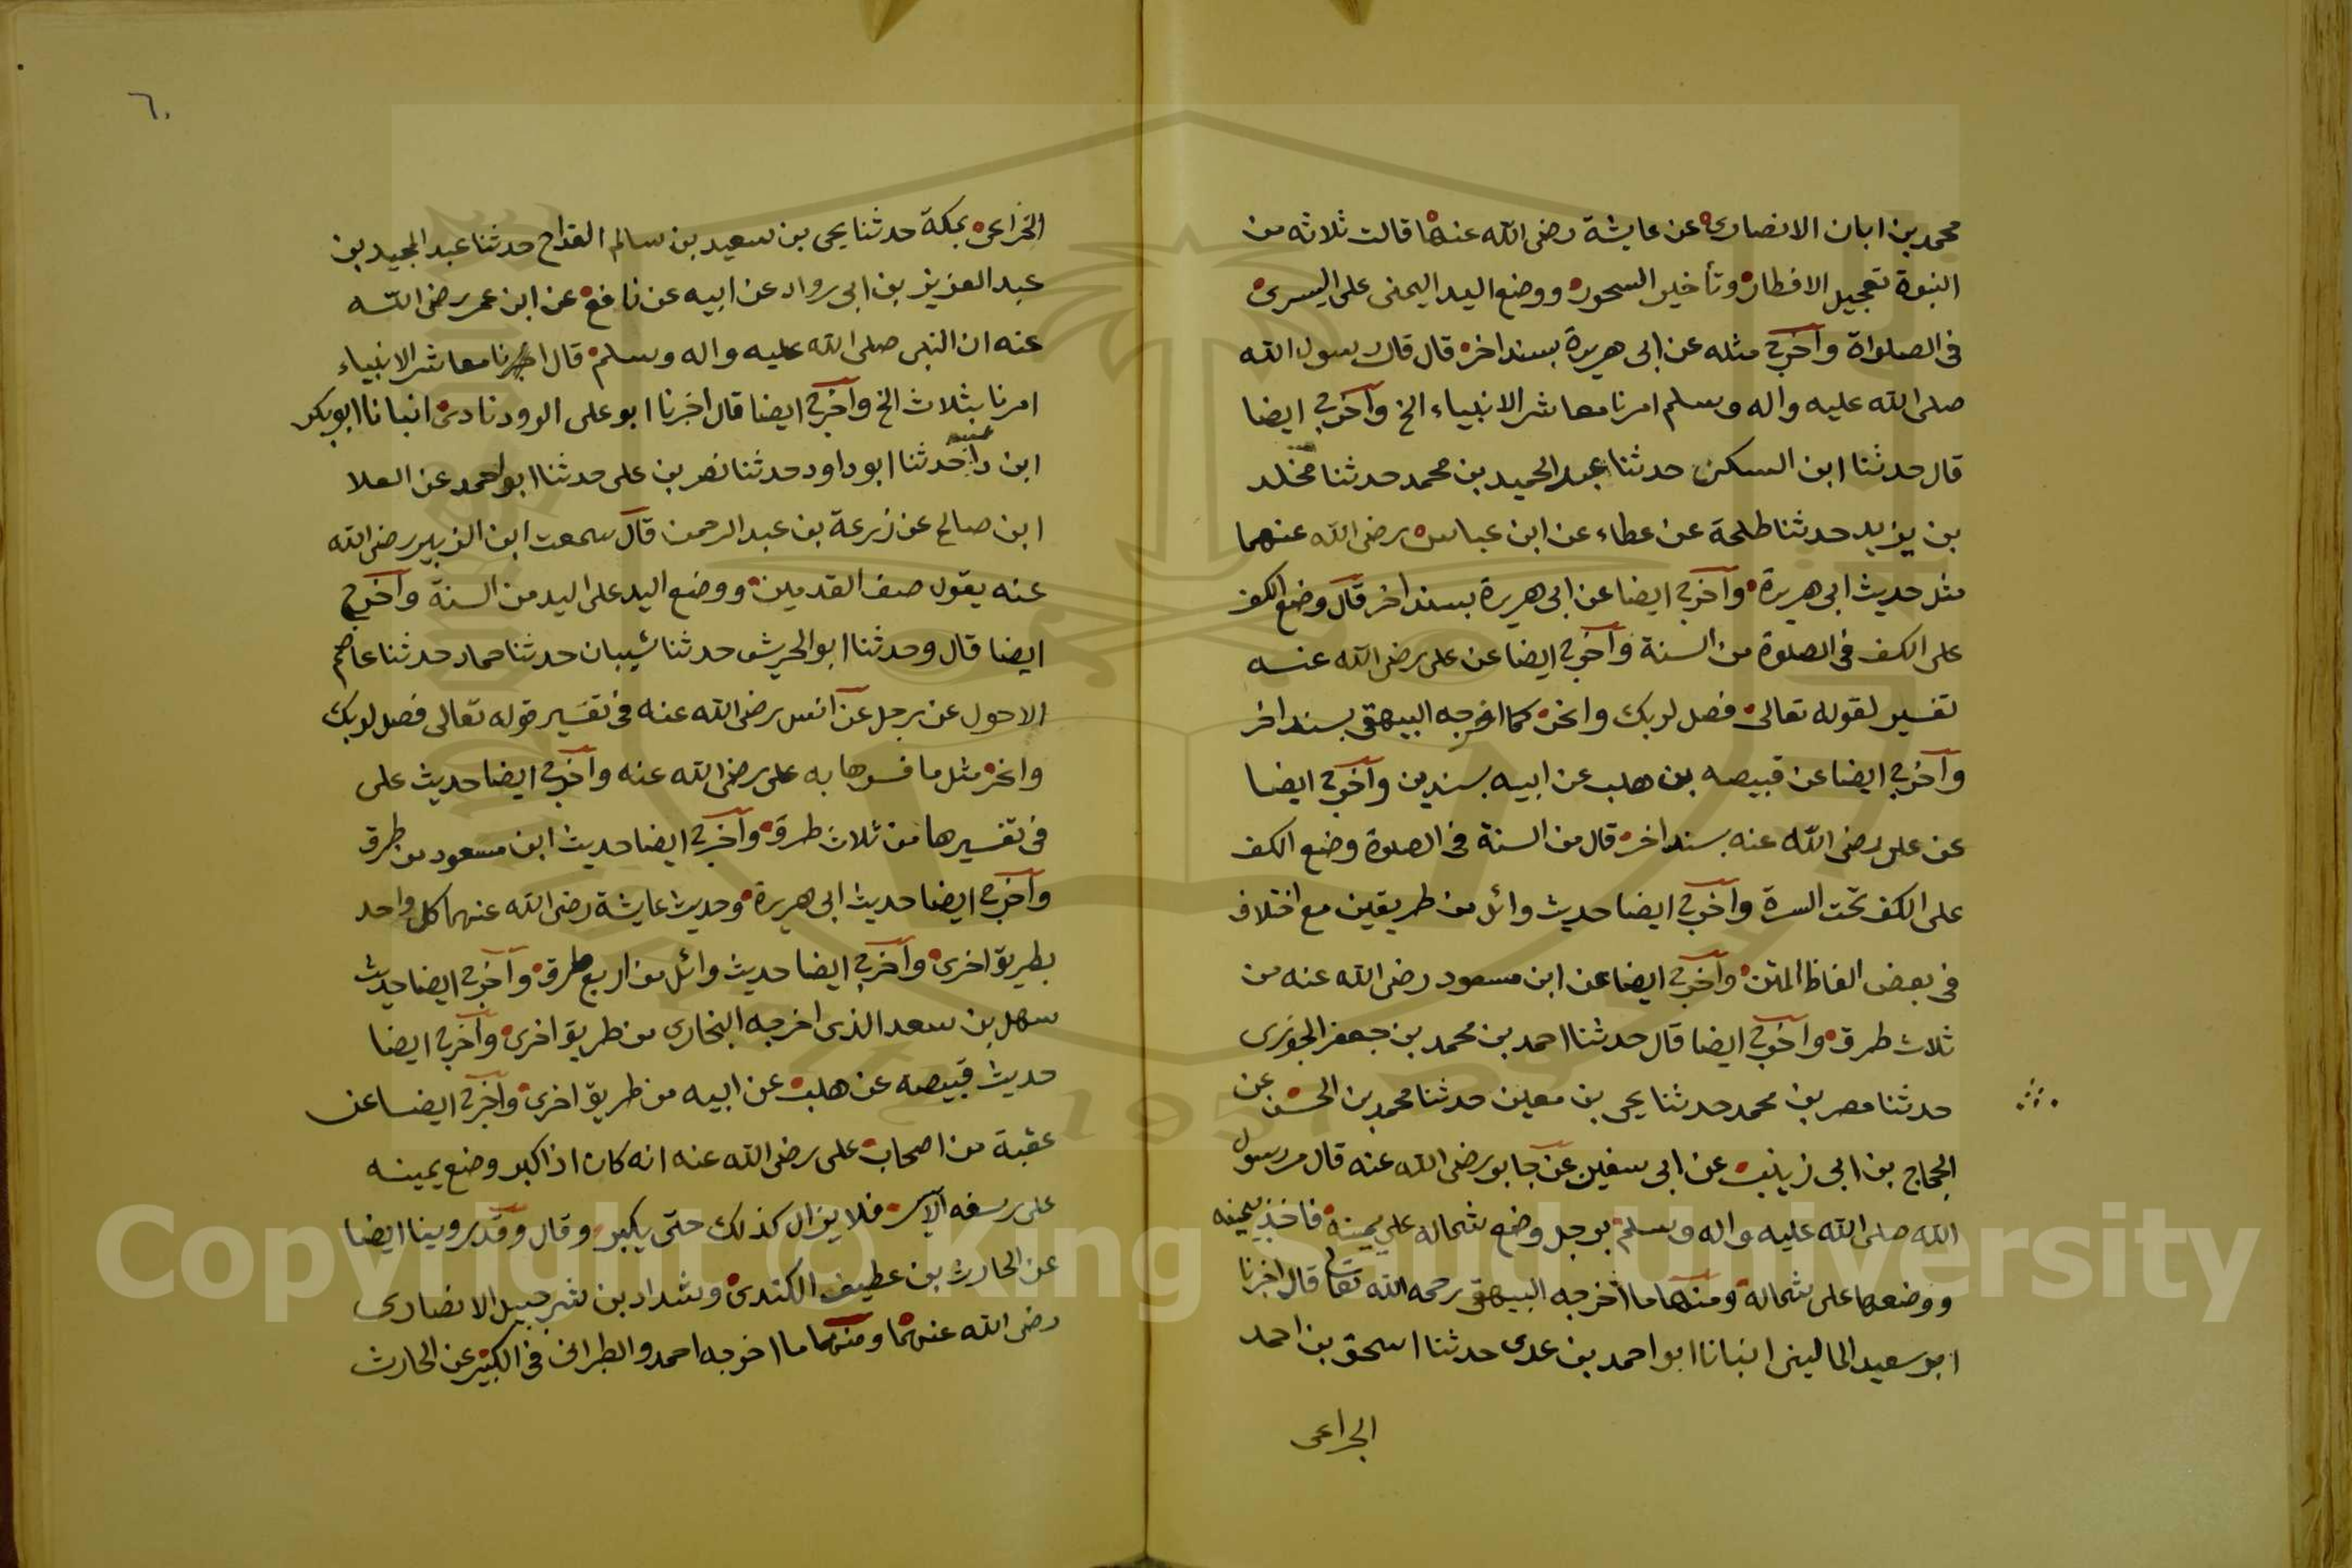 محمد بن ابان الانصارى عن عايشة رضى الله عنها قالت ثلاثه من
النبوة تعجيل الافطار وتأخير السحور ووضع اليد اليمنى على اليسرى
فى الصلواة وآخرج مثله عن ابى هريرة بسند اخر قال قال رسول الله
صلى الله عليه واله وسلم امرنا معاشر الانبياء الخ وآخرج ايضا
قال حدثنا ابن السكن حدثنا عبد الحميد بن محمد حدثنا مخلد
بن يزيد حدثنا طلحة عن عطاء عن ابن عباس رضى الله عنهما
مثل حديث ابى هريرة وآخرج ايضا عن ابى هريرة بسند اخر قال وضع الكف
على الكف فى الصلوة من السنة وآخرج ايضا عن على رضى الله عنه
تفسير لقوله تعالى فصل لربك وانحر كما اخرجه البيهقى بسند اخر
وآخرج ايضا عن قبيصه بن هلب عن ابيه بسندين وآخرج ايضا
عن على رضى الله عنه بسند اخر قال من السنة فى الصلوة وضع الكف
على الكف تحت السرة وآخرج ايضا حديث وائل من طريقين مع اختلاف
فى بعض الفاظ المتن وآخرج ايضا عن ابن مسعود رضى الله عنه من
ثلاث طرق وآخرج ايضا قال حدثنا احمد بن محمد بن جعفر الجوزى
حدثنا مصر بن محمد حدثنا يحى بن معين حدثنا محمد بن الحسن عن
الحجاج بن ابى زينب عن ابى سفين عن جابر رضى الله عنه قال مر رسول
الله صلى الله عليه واله وسلم برجل وضع شماله على يمينه فاخذ يمينه
ووضعها على شماله ومنها ما اخرجه البيهقى رحمه الله تعالى قال اخبرنا
ابو سعيد المالينى انبانا ابو احمد بن عدى حدثنا اسحق بن احمد
الخزاعى
٦٠
الخزاعى بمكة حدثنا يحى بن سعيد بن سالم القداح حدثنا عبد المجيد بن
عبد العزيز بن ابى رواد عن ابيه عن نافع عن ابن عمر رضى الله
عنه ان النبى صلى الله عليه واله وسلم قال معاشر الانبياء
امرنا بثلاث الخ وآخرج ايضا قال اخبرنا ابو على الرودنادى انبانا ابو بكر
ابن حدثنا ابو داود حدثنا نصر بن على حدثنا ابو احمد عن العلا
ابن صالح عن زرعة بن عبد الرحمن قال سمعت ابن الزبير رضى الله
عنه يقول صف القدمين ووضع اليد على اليد من السنة وآخرج
ايضا قال وحدثنا ابو الحريش حدثنا شيبان حدثنا حماد حدثنا عاصم
الاحول عن رجل عن انس رضى الله عنه فى تفسير قوله تعالى فصل لربك
وانحر مثل ما فسرها به على رضى الله عنه وآخرج ايضا حديث على
فى تفسيرها من ثلاث طرق وآخرج ايضا حديث ابن مسعود من طرق
وآخرج ايضا حديث ابى هريرة وحديث عايشة رضى الله عنهما كل واحد
بطريق اخرى وآخرج ايضا حديث وائل من اربع طرق وآخرج ايضا حديث
سهل بن سعد الذى اخرجه البخارى من طريق اخرى وآخرج ايضا
حديث قبيصه عن هلب عن ابيه من طريق اخرى وآخرج ايضا عن
عقبة من اصحاب على رضى الله عنه انه كان اذا كبر وضع يمينه
على رسغه الآيسر فلا يزال كذلك حتى يكبر وقال وقد روينا ايضا
عن الحارث بن عطيف الكندى وشداد بن شرحبيل الانصارى
رضى الله عنهما ومنها ما اخرجه احمد والطبرانى فى الكبير عن الحارث
Copyright © King Saud University
1957